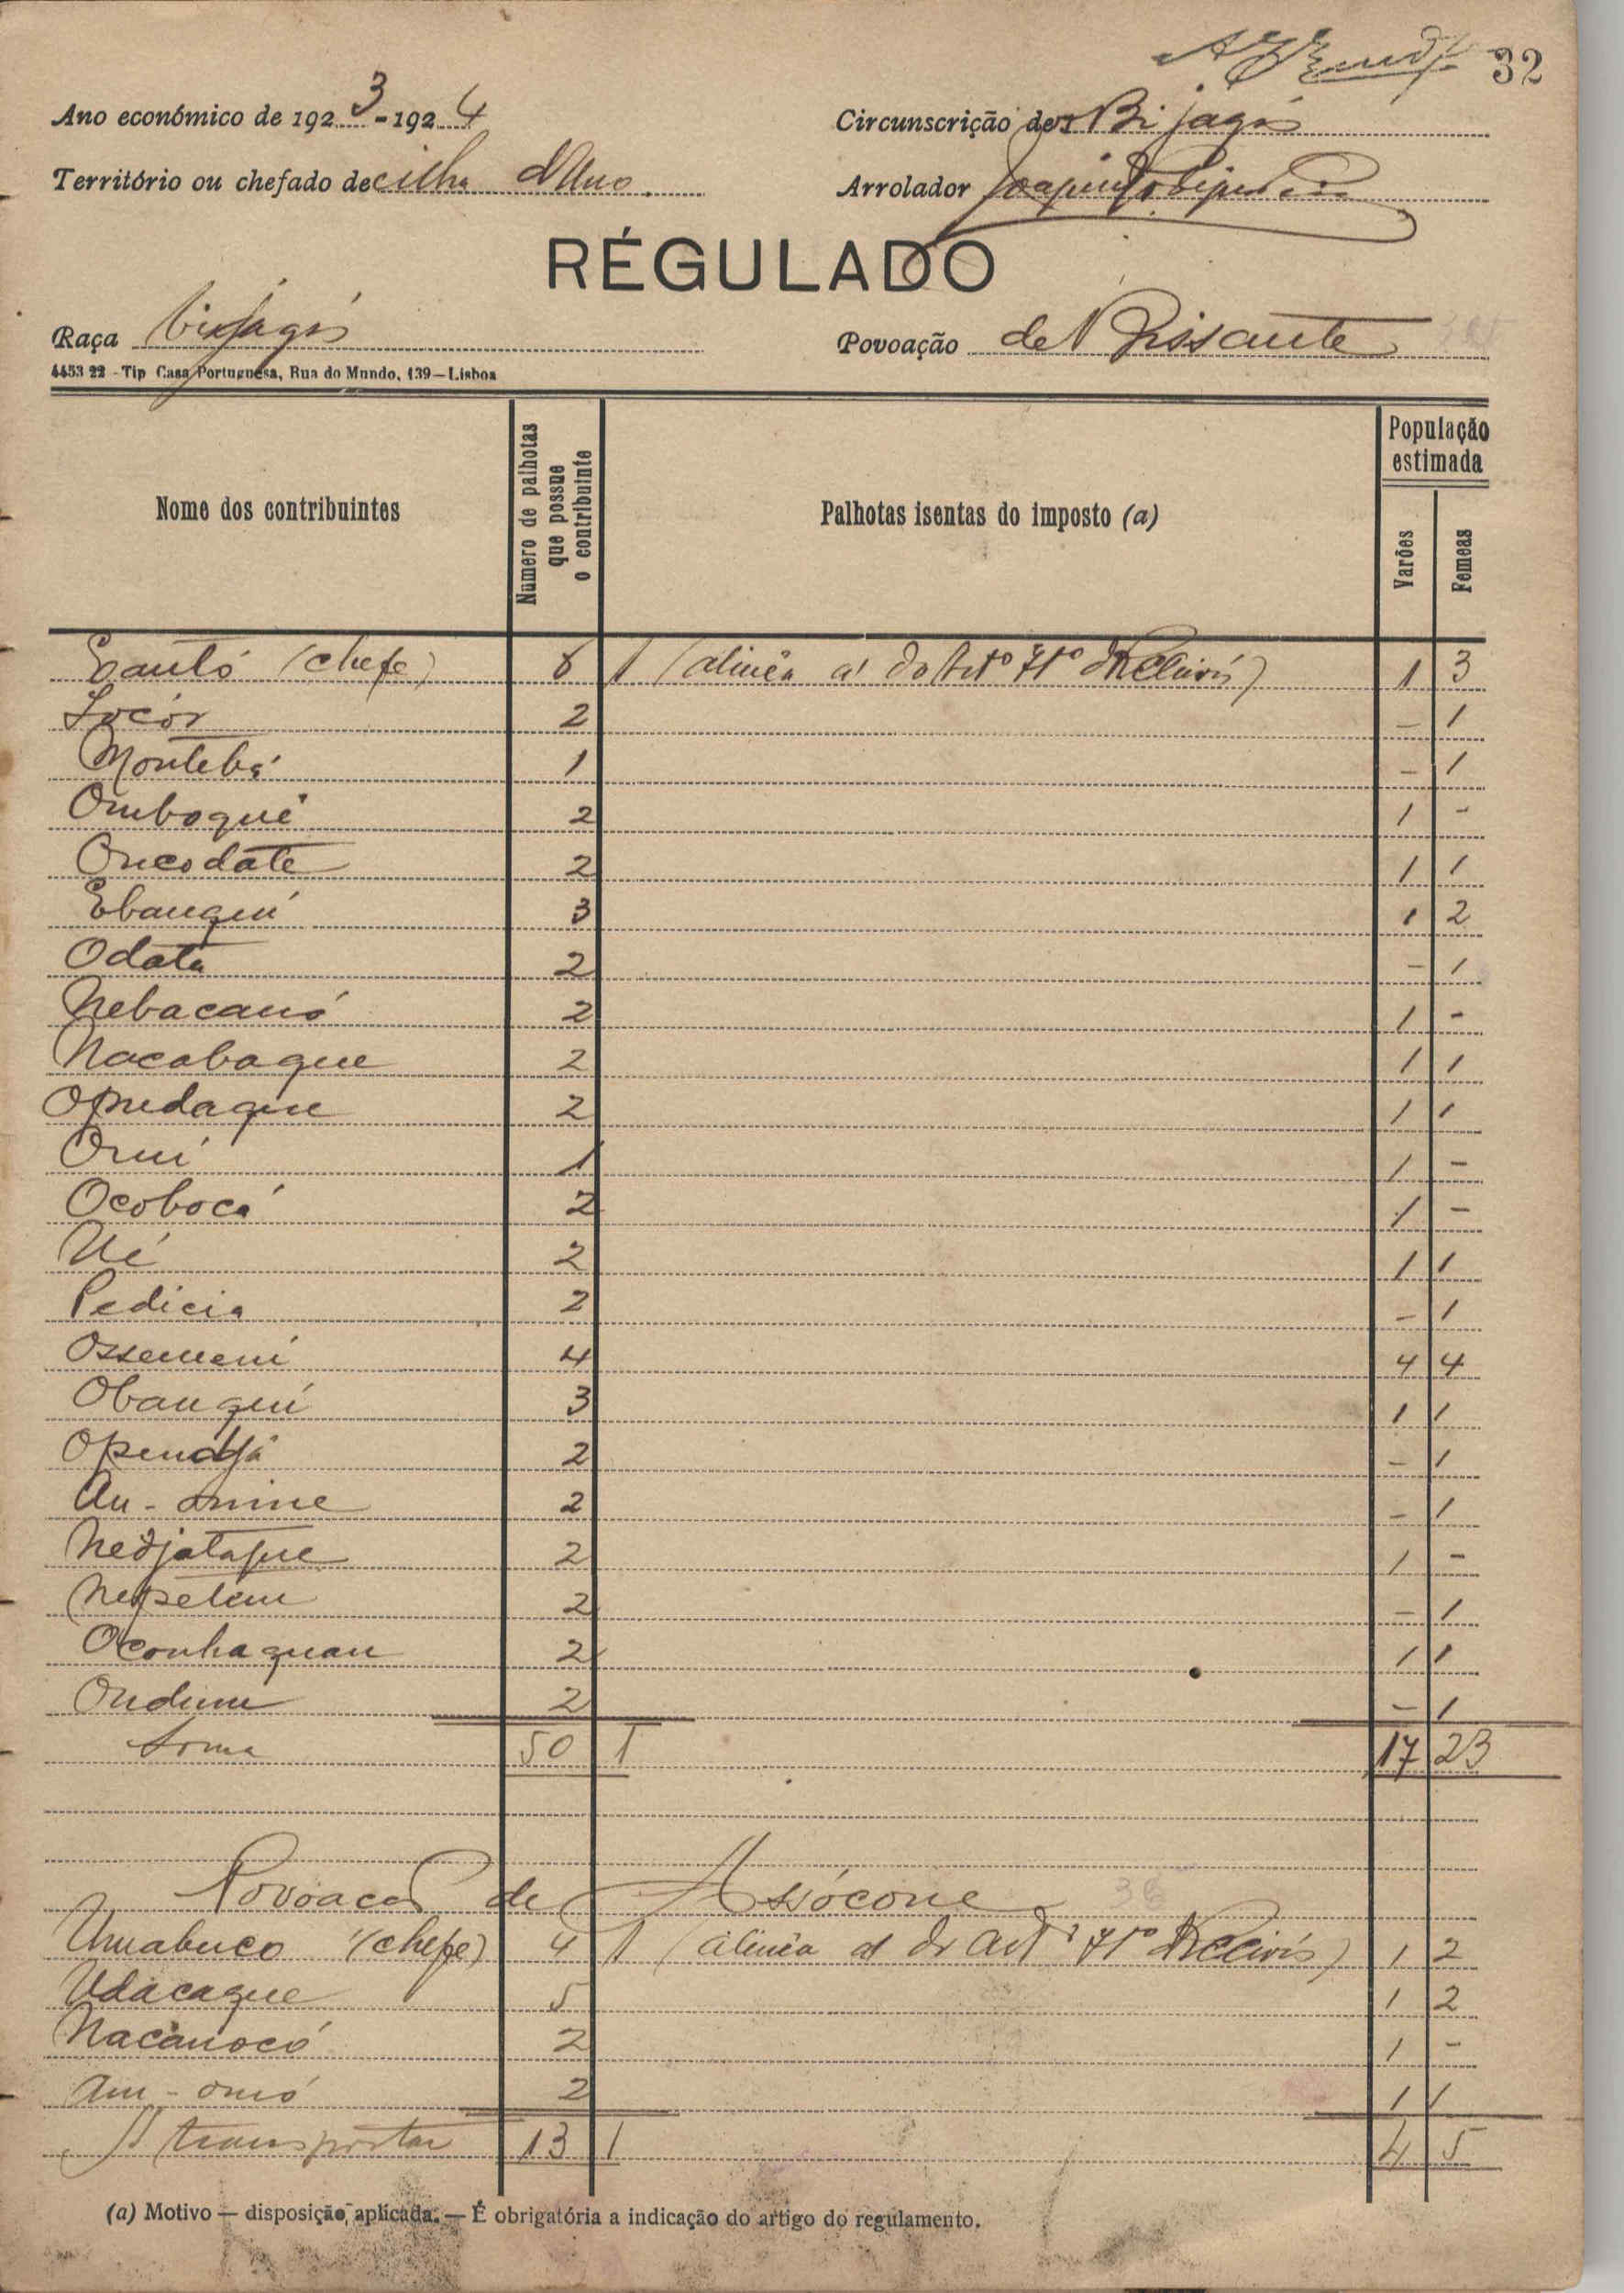 32
Ano económico de 1923-1924
Circunscrição dos Bijagós
Território ou chefado de ilha d'Uno.
Arrolador Joaquim
RÉGULADO
Raça bijagós
Povoação de
4453 22 - Tip Casa Portuguesa, Rua do Mundo, 139—Lisboa
Nome dos contribuintes
Número de palhotas que possue o contribuinte
Palhotas isentas do imposto (a)
População estimada
Varões
Femeas
(chefe) 6 1 (alinêa a' do Artº 71º 1 3
Locór 2 - 1
Montebá 1 - 1
Omboqué 2 1 -
Oncodate 2 1 1
Ebanquí 3 1 2
Odata 2 - 1
Nebacanó 2 1 -
Nacobaque 2 1 1
2 1 1
1 1 -
Ocobocá 2 1 -
Ué 2 1 1
Pedicia 2 - 1
Ossemení 4 4 4
Obanquí 3 1 1
2 - 1
An-onine 2 - 1
2 1 -
2 - 1
Oconhaquan 2 1 1
2 - 1
Soma 50 1 17 23
Povoação de Assócone 36
(chefe) 4 1 (alinêa a do artº 71º 1 2
Udacaque 5 1 2
Nacanocó 2 1 -
2 1 1
A transportar 13 1 4 5
(a) Motivo — disposição aplicada. — É obrigatória a indicação do artigo do regulamento.